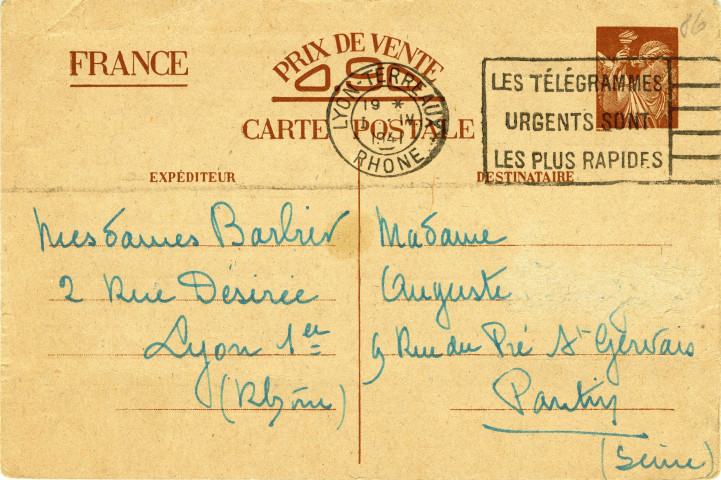 86
FRANCE
PRIX DE VENTE
0.80
CARTE POSTALE
LYON-TERREAUX
19 *
IV
1941
RHONE
LES TÉLÉGRAMMES
URGENTS SONT
LES PLUS RAPIDES
EXPÉDITEUR
Mesdames Barbier
2 Rue Désirée
Lyon 1er
(Rhône)
DESTINATAIRE
Madame
Auguste
9 Rue du Pré St Gervais
Pantin
(Seine)